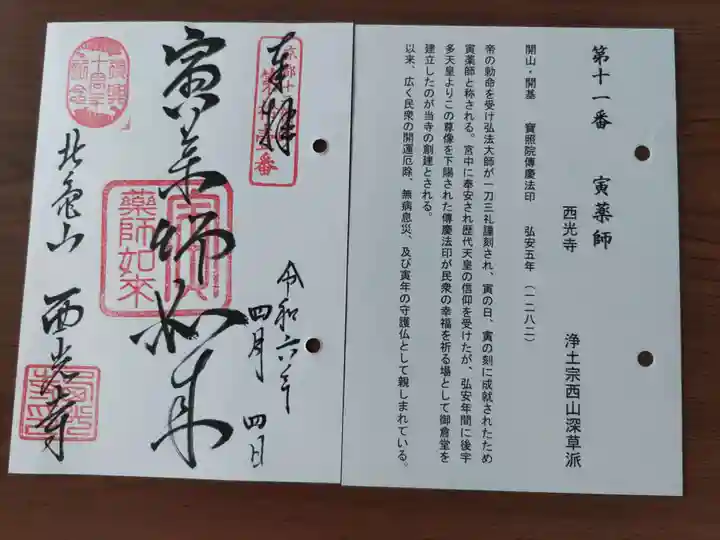 第十一番 寅薬師
西光寺 浄土宗西山深草派
開山・開基 寶照院傳慶法印 弘安五年(一二八二)
帝の勅命を受け弘法大師が一刀三礼謹刻され、寅の日、寅の刻に成就されたため
寅薬師と称される。宮中に奉安され歴代天皇の信仰を受けたが、弘安年間に後宇
多天皇よりこの尊像を下賜された傳慶法印が民衆の幸福を祈る場として御倉堂を
建立したのが当寺の創建とされる。
以来、広く民衆の開運厄除、無病息災、及び寅年の守護仏として親しまれている。
奉拝
令和六年
四月 四日
寅薬師如来
藥師如來
北亀山 西光寺